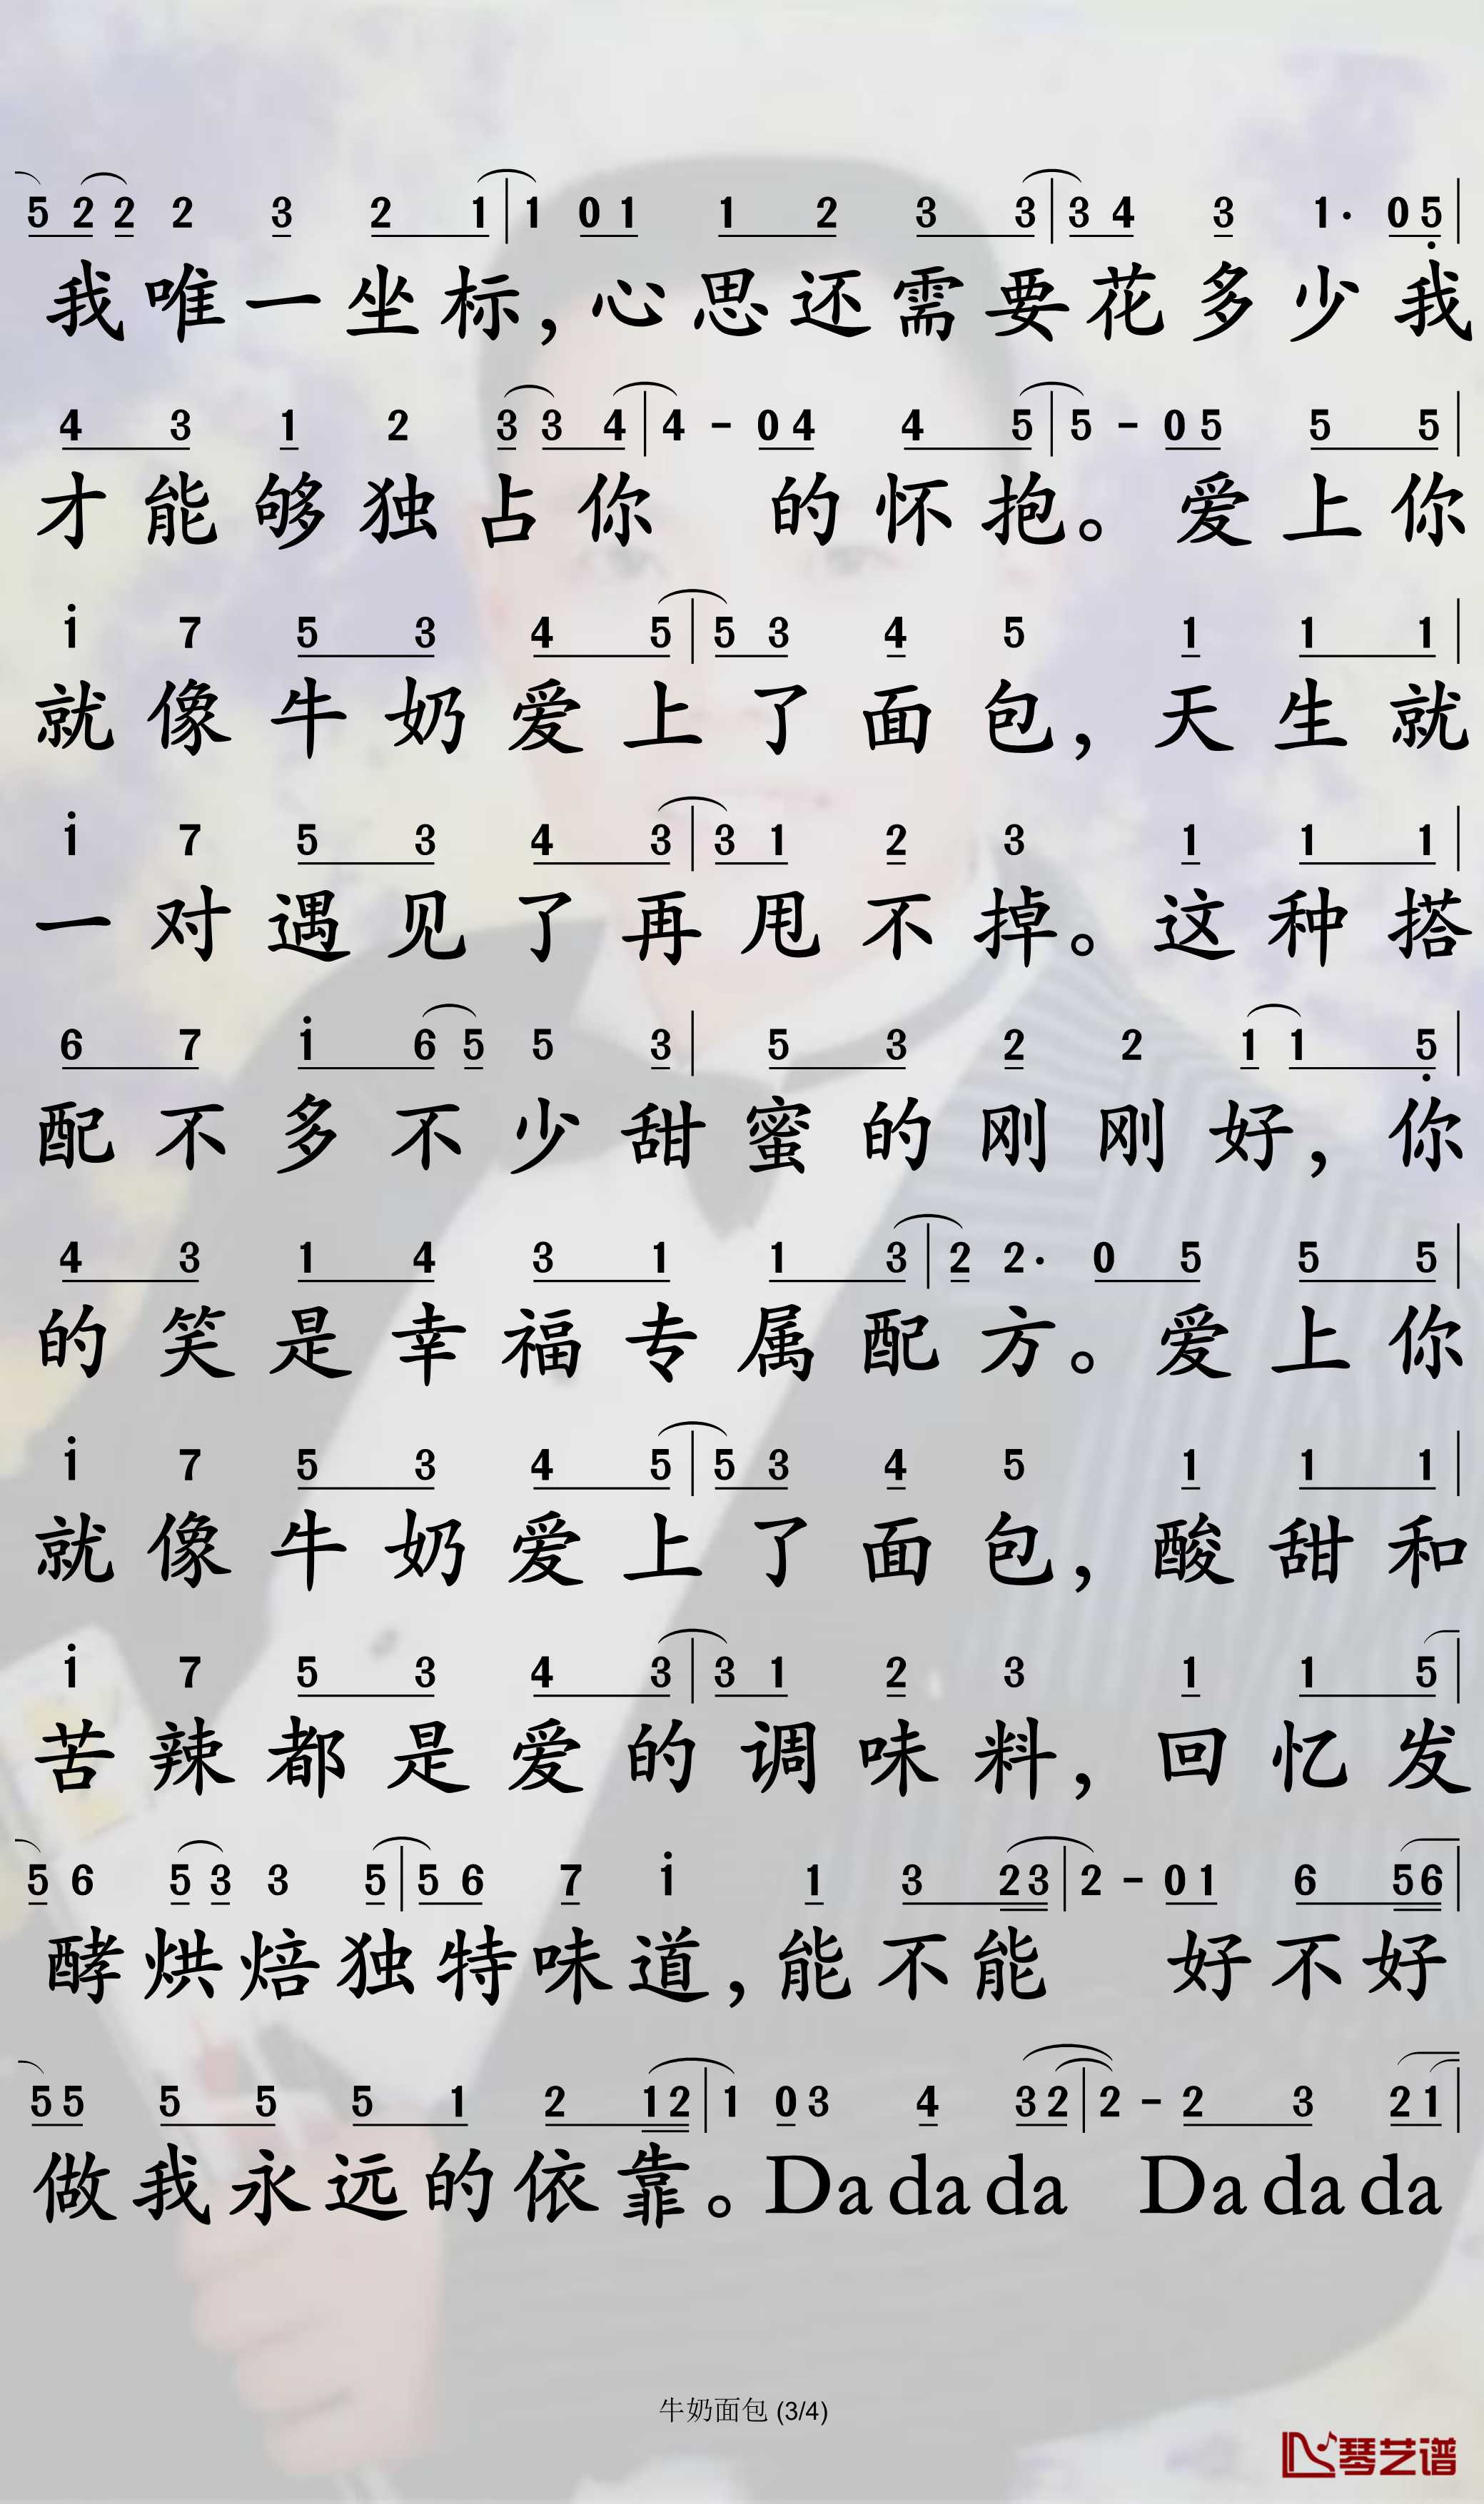 5 2 2 2 3 2 1 | 1 0 1 1 2 3 3 | 3 4 3 1· 0 5 |
我唯一坐标,心思还需要花多少我
4 3 1 2 3 3 4 | 4 - 0 4 4 5 | 5 - 0 5 5 5 |
才能够独占你 的怀抱。爱上你
i 7 5 3 4 5 | 5 3 4 5 1 1 1 |
就像牛奶爱上了面包,天生就
i 7 5 3 4 3 | 3 1 2 3 1 1 1 |
一对遇见了再甩不掉。这种搭
6 7 i 6 5 5 3 | 5 3 2 2 1 1 5 |
配不多不少甜蜜的刚刚好,你
4 3 1 4 3 1 1 3 | 2 2· 0 5 5 5 |
的笑是幸福专属配方。爱上你
i 7 5 3 4 5 | 5 3 4 5 1 1 1 |
就像牛奶爱上了面包,酸甜和
i 7 5 3 4 3 | 3 1 2 3 1 1 5 |
苦辣都是爱的调味料,回忆发
5 6 5 3 3 5 | 5 6 7 i 1 3 2 3 | 2 - 0 1 6 5 6 |
酵烘焙独特味道,能不能 好不好
5 5 5 5 5 1 2 1 2 | 1 0 3 4 3 2 | 2 - 2 3 2 1 |
做我永远的依靠。Da da da Da da da
牛奶面包 (3/4)
琴艺谱